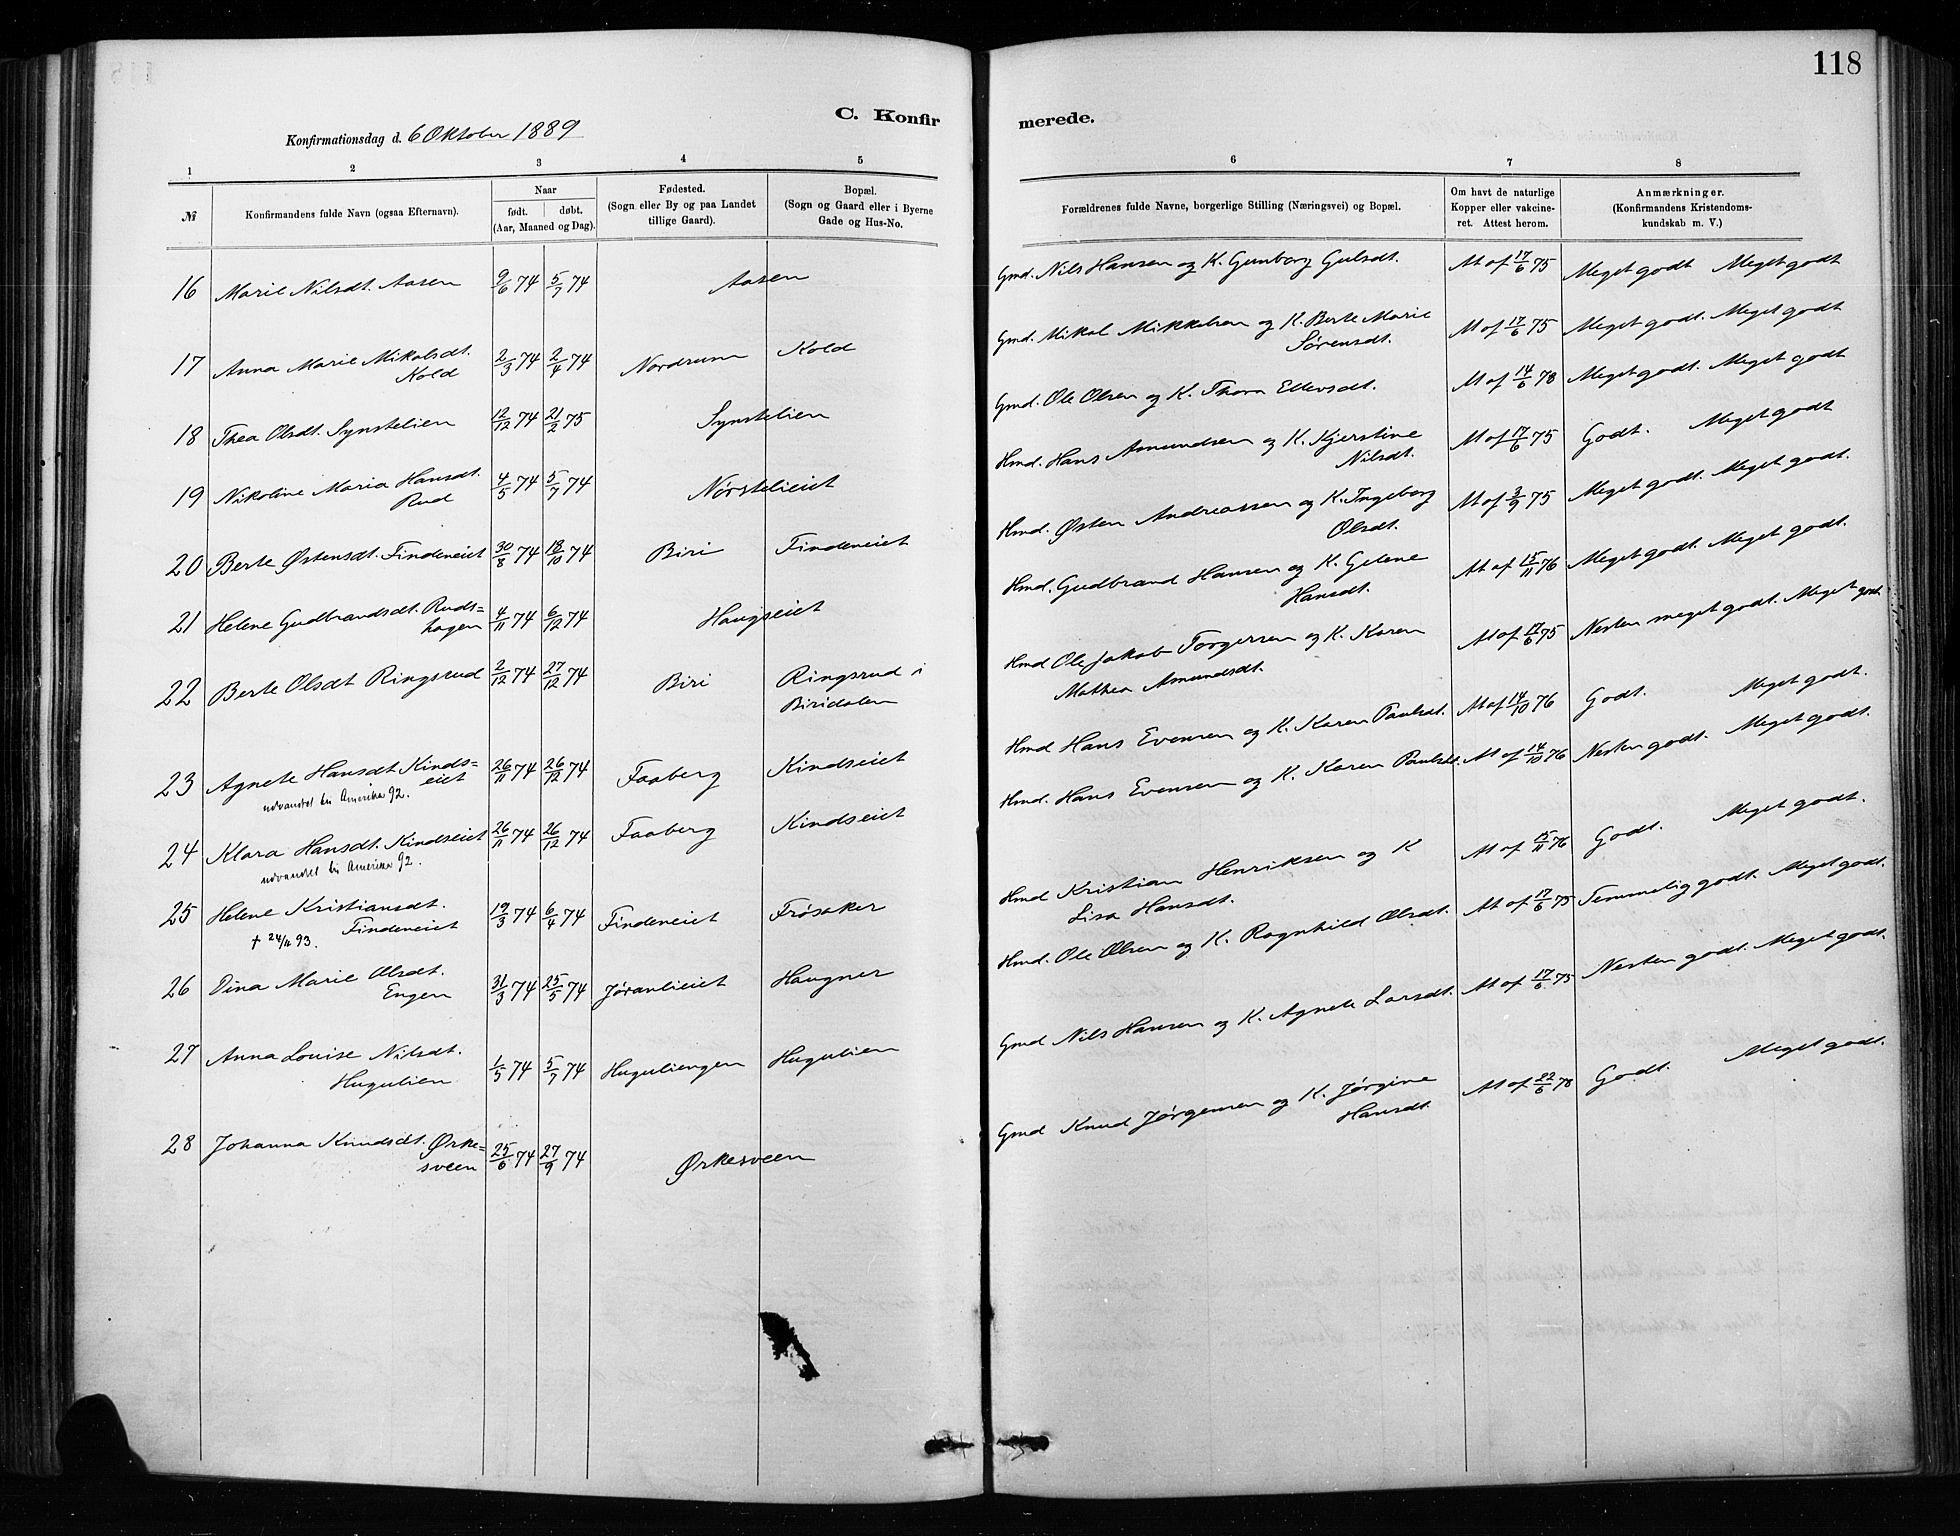 118
C. Konfirmerede.
Konfirmationsdag d. 6 Oktober 1889
1 2 3 4 5 6 7 8
№
Konfirmandens fulde Navn (ogsaa Efternavn).
Naar
født. døbt.
(Aar, Maaned og Dag).
Fødested.
(Sogn eller By og paa Landet
tillige Gaard).
Bopæl.
(Sogn og Gaard eller i Byerne
Gade og Hus-No.
Forældrenes fulde Navne, borgerlige Stilling (Næringsvei) og Bopæl.
Om havt de naturlige
Kopper eller vakcine-
ret. Attest herom.
Anmærkninger.
(Konfirmandens Kristendoms-
kundskab m. V.)
16 Marie Nilsdt. Aasen 9/6 74 5/7 74 Aasen Gmd. Nils Hansen og K. Gunborg Gulsdt. At af 17/6 75 Meget godt Meget godt
17 Anna Marie Mikalsdt. 2/3 74 2/4 74 Nordrum Kold Gmd. Mikal Mikkelsen og K. Berte Marie At af 17/6 75 Meget godt. Meget godt
Kold Sørensdt.
18 Thea Olsdt. Synstelien 12/12 74 21/2 75 Synstelien Gmd. Ole Olsen og K. Thora Ellevsdt. At af 14/6 78 Meget godt. Meget godt
19 Nikoline Maria Hansdt. 4/5 74 5/7 74 Nørstelieiet Hmd. Hans Amundsen og K. Kjerstine At af 17/6 75 Godt. Meget godt
Rud Nilsdt.
20 Berte Østensdt. Findeneiet 30/8 74 18/10 74 Biri Findeneiet Hmd. Østen Andreassen og K. Ingeborg At af 3/9 75 Meget godt. Meget godt.
Olsdt.
21 Helene Gudbrandsdt. Ruds= 4/11 74 6/12 74 Haugseiet Hmd. Gudbrand Hansen og K. Gelene At af 15/11 76 Meget godt. Meget godt.
hagen Hansdt.
22 Berte Olsdt Ringsrud 2/12 74 27/12 74 Biri Ringsrud i Hmd Ole Jakob Torgersen og K. Karen At af 17/6 75 Nesten meget godt. Meget godt.
Biridalen Mathea Amundsdt.
23 Agnete Hansdt Kinds= 26/11 74 26/12 74 Faaberg Kindseiet Hmd Hans Evensen og K. Karen Paulsdt. At af 14/10 76 Godt. Meget godt.
eiet
udvandret til Amerika 92.
24 Klara Hansdt. Kindseiet 26/11 74 26/12 74 Faaberg Kindseiet Hmd. Hans Evensen og K. Karen Paulsdt. At af 14/10 76 Nesten godt. Meget godt.
udvandret til Amerika 92.
25 Helene Kristiansdt. 19/3 74 6/4 74 Findeneiet Frøsaker Hmd Kristian Henriksen og K At af 15/11 76 Godt. Meget godt.
Findeneiet Lisa Hansdt.
† 24/11 93.
26 Dina Marie Olsdt. 31/3 74 25/5 74 Jøranlieiet Haugner Hmd. Ole Olsen og K. Ragnhild Olsdt. At af 17/6 75 Temmelig godt. Meget godt.
Engen
27 Anna Louise Nilsdt. 1/5 74 5/7 74 Huguliengen Hugulien Gmd Nils Hansen og K. Agnete Larsdt. At af 17/6 75 Nesten godt. Meget godt.
Hugulien
28 Johanna Knudsdt. Ørke= 25/6 74 27/9 74 Ørkesveen Gmd Knud Jørgensen og K. Jørgine At af 22/6 78 Godt. Meget godt.
sveen Hansdt.